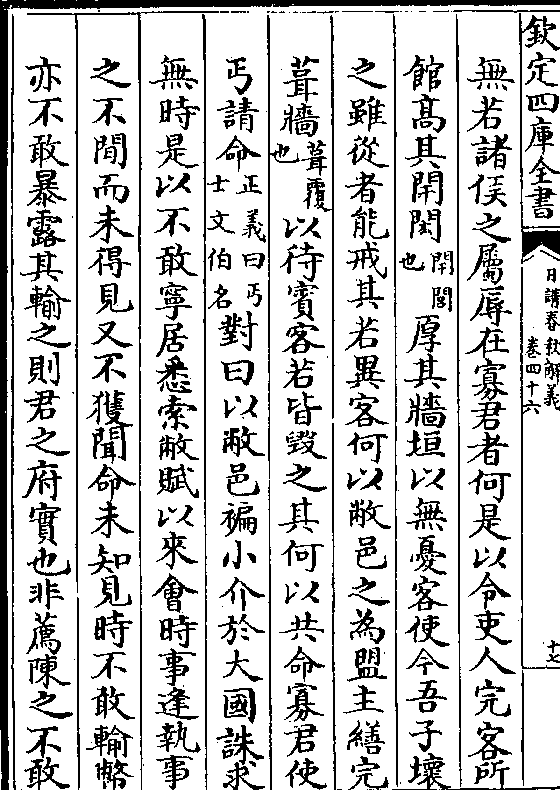 欽定四庫全書
日講春秋解義
卷四十六
十七
無若諸侯之屬辱在寡君者何是以令吏人完客所
館髙其閈閎閈閎也厚其牆垣以無憂客使今吾子壞
之雖從者能戒其若異客何以敝邑之為盟主繕完
葺牆葺覆也以待賓客若皆毀之其何以共命寡君使
丐請命正義曰丐士文伯名對曰以敝邑褊小介於大國誅求
無時是以不敢寧居悉索敝賦以來會時事逢執事
之不閒而未得見又不獲聞命未知見時不敢輸幣
亦不敢暴露其輸之則君之府實也非薦陳之不敢